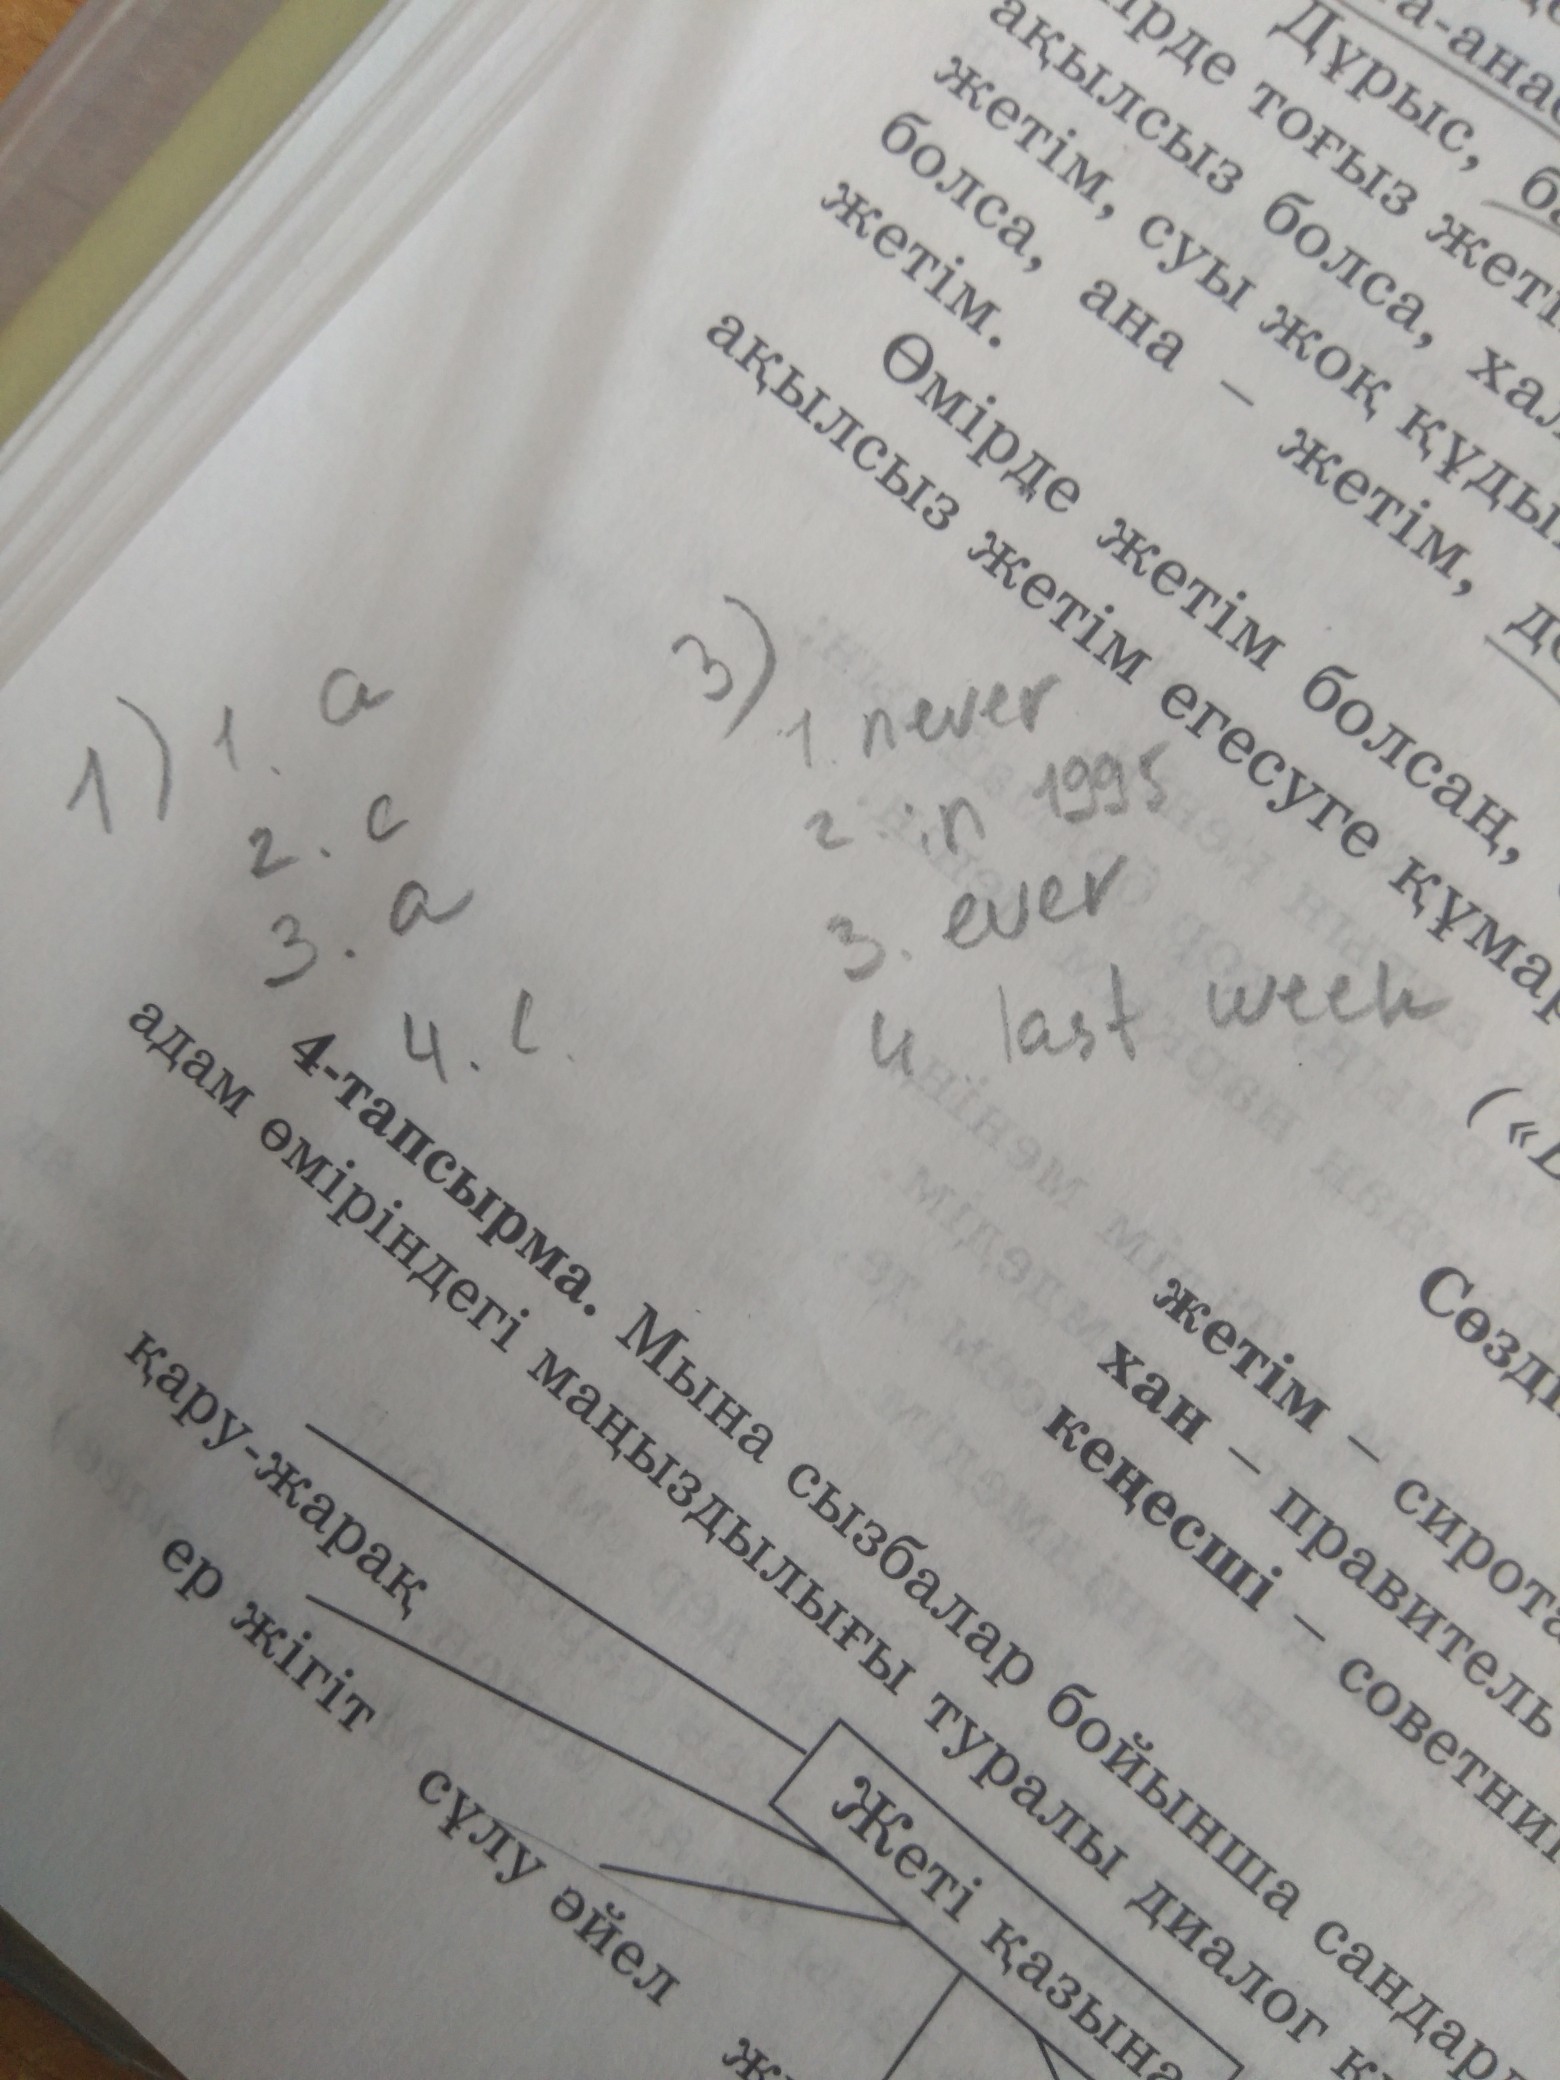 а-анас
Дұрыс, ба
ірде тоғыз жеті
ақылсыз болса, хал
жетім, суы жоқ құды
болса, ана – жетім,
жетім.
Өмірде жетім болсаң,
ақылсыз жетім егесуге құмар
1) 1. a
2. c
3. a
4. c.
3) 1. never
2. in 1995
3. ever
4. last week
Сөзді
жетім – сирота
хан – правитель
кеңесші – советни
4-тапсырма. Мына сызбалар бойынша сандард
адам өміріндегі маңыздылығы туралы диалог құ
Жеті қазына
қару-жарақ
ер жігіт
сұлу әйел